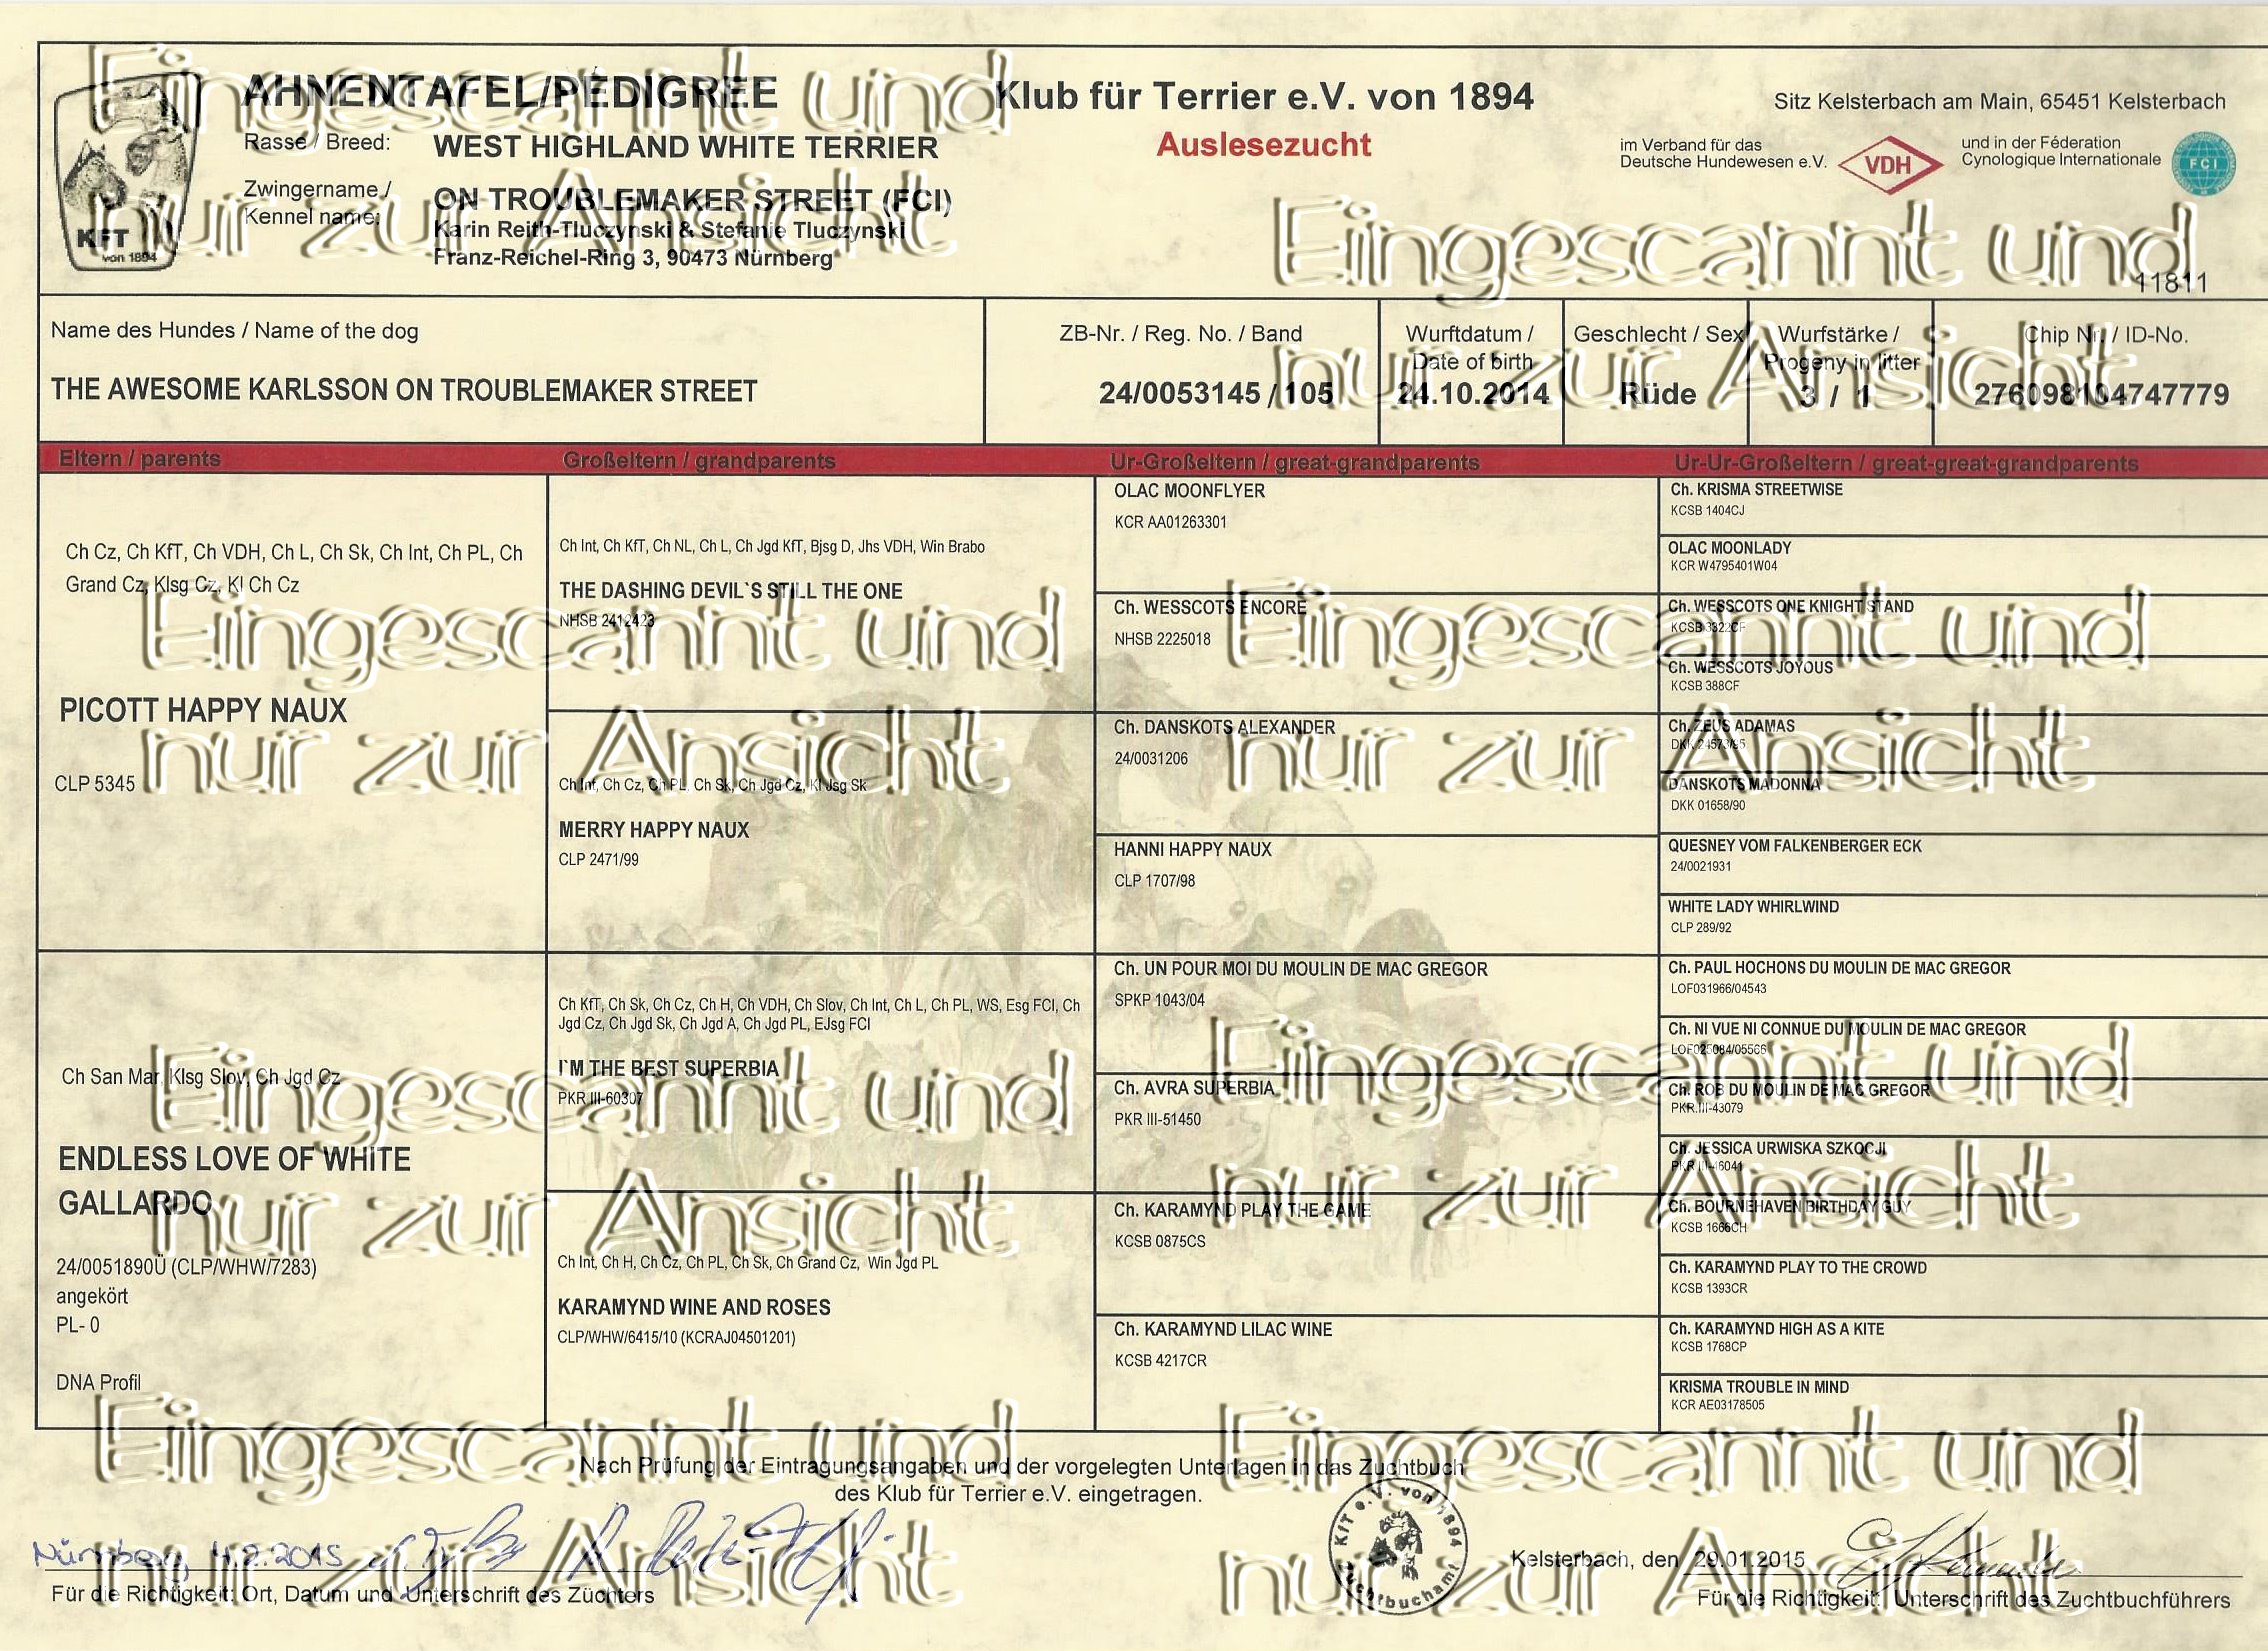 AHNENTAFEL/PEDIGREE
Klub für Terrier e.V. von 1894
Sitz Kelsterbach am Main, 65451 Kelsterbach
Rasse / Breed:
WEST HIGHLAND WHITE TERRIER
Auslesezucht
im Verband für das
Deutsche Hundewesen e.V.
VDH
und in der Féderation
Cynologique Internationale
FCI
Zwingername /
Kennel name:
ON TROUBLEMAKER STREET (FCI)
Karin Reith-Tluczynski & Stefanie Tluczynski
Franz-Reichel-Ring 3, 90473 Nürnberg
KFT
von 1894
11811
Eingescannt und
nur zur Ansicht
Eingescannt und
nur zur Ansicht
Name des Hundes / Name of the dog
THE AWESOME KARLSSON ON TROUBLEMAKER STREET
ZB-Nr. / Reg. No. / Band
24/0053145 / 105
Wurftdatum /
Date of birth
24.10.2014
Geschlecht / Sex
Rüde
Wurfstärke /
Progeny in litter
3 / 1
Chip Nr. / ID-No.
276098104747779
Eltern / parents
Großeltern / grandparents
Ur-Großeltern / great-grandparents
Ur-Ur-Großeltern / great-great-grandparents
Ch Cz, Ch KfT, Ch VDH, Ch L, Ch Sk, Ch Int, Ch PL, Ch
Grand Cz, Klsg Cz, Kl Ch Cz
PICOTT HAPPY NAUX
CLP 5345
Ch San Mar, Klsg Slov, Ch Jgd Cz
ENDLESS LOVE OF WHITE
GALLARDO
24/0051890Ü (CLP/WHW/7283)
angekört
PL- 0
DNA Profil
Ch Int, Ch KfT, Ch NL, Ch L, Ch Jgd KfT, Bjsg D, Jhs VDH, Win Brabo
THE DASHING DEVIL`S STILL THE ONE
NHSB 2412423
Ch Int, Ch Cz, Ch PL, Ch Sk, Ch Jgd Cz, Kl Jsg Sk
MERRY HAPPY NAUX
CLP 2471/99
Ch KfT, Ch Sk, Ch Cz, Ch H, Ch VDH, Ch Slov, Ch Int, Ch L, Ch PL, WS, Esg FCI, Ch
Jgd Cz, Ch Jgd Sk, Ch Jgd A, Ch Jgd PL, EJsg FCI
I`M THE BEST SUPERBIA
PKR III-60307
Ch Int, Ch H, Ch Cz, Ch PL, Ch Sk, Ch Grand Cz, Win Jgd PL
KARAMYND WINE AND ROSES
CLP/WHW/6415/10 (KCRAJ04501201)
OLAC MOONFLYER
KCR AA01263301
Ch. WESSCOTS ENCORE
NHSB 2225018
Ch. DANSKOTS ALEXANDER
24/0031206
HANNI HAPPY NAUX
CLP 1707/98
Ch. UN POUR MOI DU MOULIN DE MAC GREGOR
SPKP 1043/04
Ch. AVRA SUPERBIA
PKR III-51450
Ch. KARAMYND PLAY THE GAME
KCSB 0875CS
Ch. KARAMYND LILAC WINE
KCSB 4217CR
Ch. KRISMA STREETWISE
KCSB 1404CJ
OLAC MOONLADY
KCR W4795401W04
Ch. WESSCOTS ONE KNIGHT STAND
KCSB 3322CF
Ch. WESSCOTS JOYOUS
KCSB 388CF
Ch. ZEUS ADAMAS
DKK 24573/95
DANSKOTS MADONNA
DKK 01658/90
QUESNEY VOM FALKENBERGER ECK
24/0021931
WHITE LADY WHIRLWIND
CLP 289/92
Ch. PAUL HOCHONS DU MOULIN DE MAC GREGOR
LOF031966/04543
Ch. NI VUE NI CONNUE DU MOULIN DE MAC GREGOR
LOF025084/05566
Ch. ROB DU MOULIN DE MAC GREGOR
PKR.III-43079
Ch. JESSICA URWISKA SZKOCJI
PKR III-46041
Ch. BOURNEHAVEN BIRTHDAY GUY
KCSB 1666CH
Ch. KARAMYND PLAY TO THE CROWD
KCSB 1393CR
Ch. KARAMYND HIGH AS A KITE
KCSB 1768CP
KRISMA TROUBLE IN MIND
KCR AE03178505
Eingescannt und
nur zur Ansicht
Eingescannt und
nur zur Ansicht
Eingescannt und
nur zur Ansicht
Eingescannt und
nur zur Ansicht
Eingescannt und
nur zur Ansicht
Eingescannt und
nur zur Ansicht
Nach Prüfung der Eintragungsangaben und der vorgelegten Unterlagen in das Zuchtbuch
des Klub für Terrier e.V. eingetragen.
Nürnberg, 4.2.2015
Für die Richtigkeit: Ort, Datum und Unterschrift des Züchters
KfT e.V. von 1894
Zuchtbuchamt
Kelsterbach, den 29.01.2015
Für die Richtigkeit: Unterschrift des Zuchtbuchführers